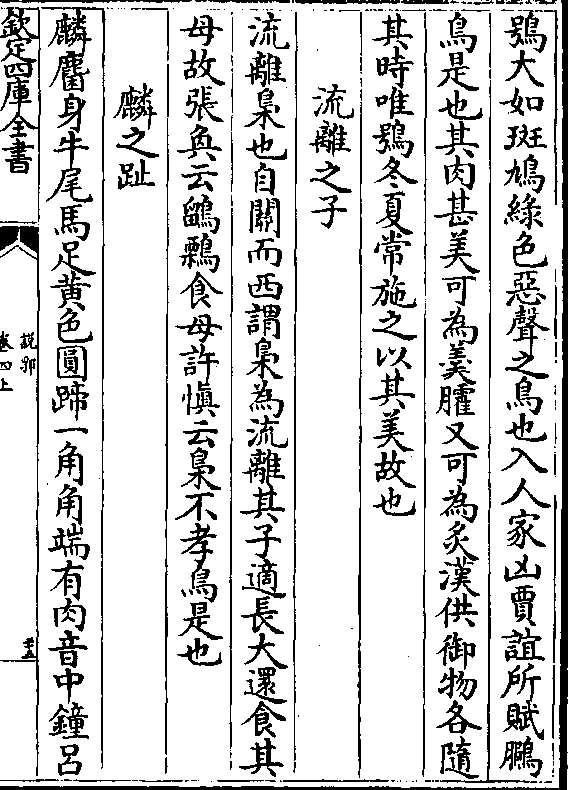 鴞大如斑鳩綠色惡聲之鳥也入人家凶賈誼所賦鵩
鳥是也其肉甚美可為羹臛又可為炙漢供御物各隨
其時唯鴞冬夏常施之以其美故也
流離之子
流離梟也自關而西謂梟為流離其子適長大還食其
母故張奐云鶹鷅食母許慎云梟不孝鳥是也
麟之趾
麟麕身牛尾馬足黃色圓蹄一角角端有肉音中鐘呂
欽定四庫全書
說郛
卷四上